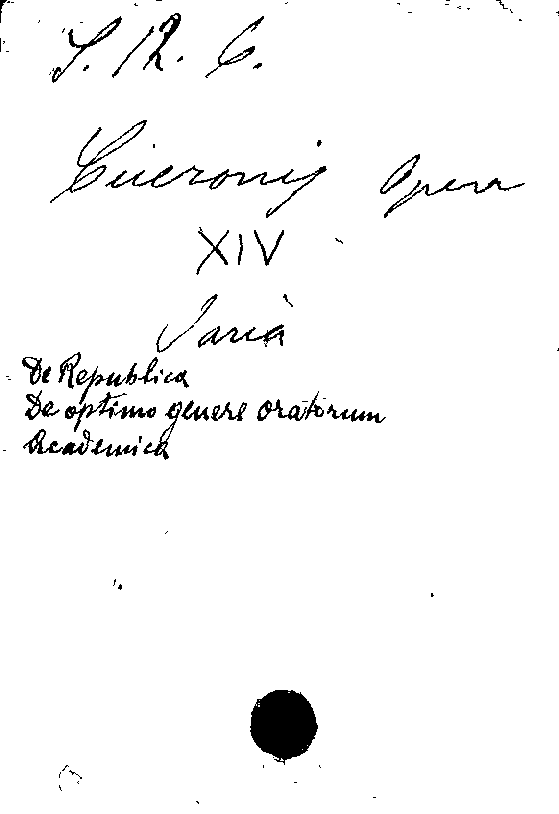 S. 12. C.
Ciceronis Opera
XIV
Varia
De Republica
De optimo genere oratorum
Academica